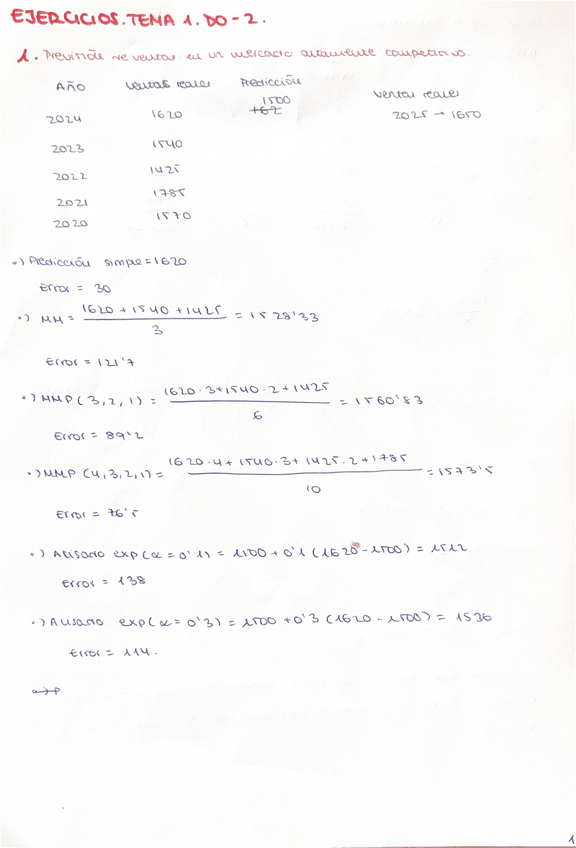 EJERCICIOS. TEMA 1. DO-2.
1. Previsión de ventas en un mercado altamente competitivo.
AÑO ventas reales Predicción ventas reales
2024 1620 1500 2025 → 1650
2023 1540
2022 1425
2021 1785
2020 1570
•) Predicción simple = 1620
Error = 30
•) MM = 1620 + 1540 + 1425 / 3 = 1528'33
Error = 121'7
•) MMP (3, 2, 1) = 1620 · 3 + 1540 · 2 + 1425 / 6 = 1560'83
Error = 89'2
•) MMP (4, 3, 2, 1) = 1620 · 4 + 1540 · 3 + 1425 · 2 + 1785 / 10 = 1573'5
Error = 76'5
•) Alisado exp (α = 0'1) = 1500 + 0'1 (1620 - 1500) = 1512
Error = 138
•) Alisado exp (α = 0'3) = 1500 + 0'3 (1620 - 1500) = 1536
Error = 114.
1